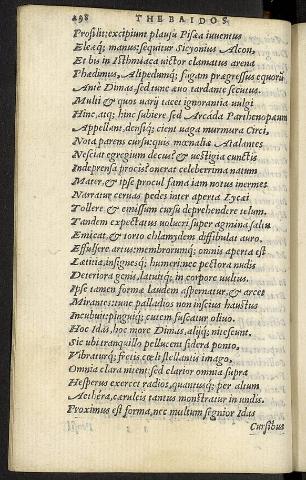 298 THEBAIDOS
Prosilit: excipiunt plausu Pisæa iuuentus
Eleæq; manus: sequitur Sicyonius Alcon,
Et bis in Isthmiaca uictor clamatus arena
Phædimus, Alipedumq; fugam prægressus equorū
Antè Dimas, sed tunc æuo tardante secutus.
Multi & quos uarij tacet ignorantia uulgi
Hinc, atq; hinc subiere sed Arcada Parthenopæum
Appellant, densiq; cient uaga murmura Circi,
Nota parens cursu: quis mœnalia Atalantes
Nesciat egregium decus? & uestigia cunctis
Indeprensa procis? onerat celeberrima natum
Mater, & ipse procul fama iam notus inermes
Narratur ceruas pedes inter aperta Lycæi
Tollere & emissum cursu deprehendere telum.
Tandem expectatus uolucri super agmina saltu
Emicat, & torto chlamydem diffibulat auro.
Effulsere artus: membrorumq; omnis aperta est
Lætitia, insignesq; humeri: nec pectora nudis
Deteriora genis, latuitq; in corpore uultus.
Ipse tamen formæ laudem aspernatur, & arcet
Mirantes: tunc palladios non inscius haustus
Incubuit: pinguiq; cutem fuscatur oliuo.
Hoc Idas, hoc more Dimas, alijq; nitescunt.
Sic ubi tranquillo pellucent sidera ponto,
Vibraturq; fretis, cœli stellantis imago,
Omnia clara nitent: sed clarior omnia supra
Hesperus exercet radios, quantusq; per altum
Aethéra, cæruleis tantus monstratur in undis.
Proximus est forma, nec multum segnior Idas
Cursibus